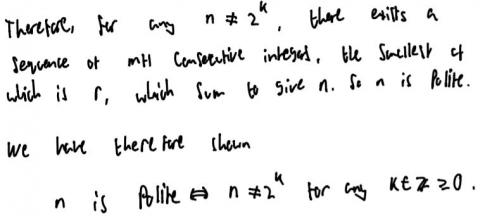 Therefore, for any n ≠ 2^k, there exists a
sequence of m+1 consecutive integers, the smallest of
which is r, which sum to give n. So n is polite.
We have therefore shown
n is polite ⇔ n ≠ 2^k for any k ∈ ℤ ≥ 0.